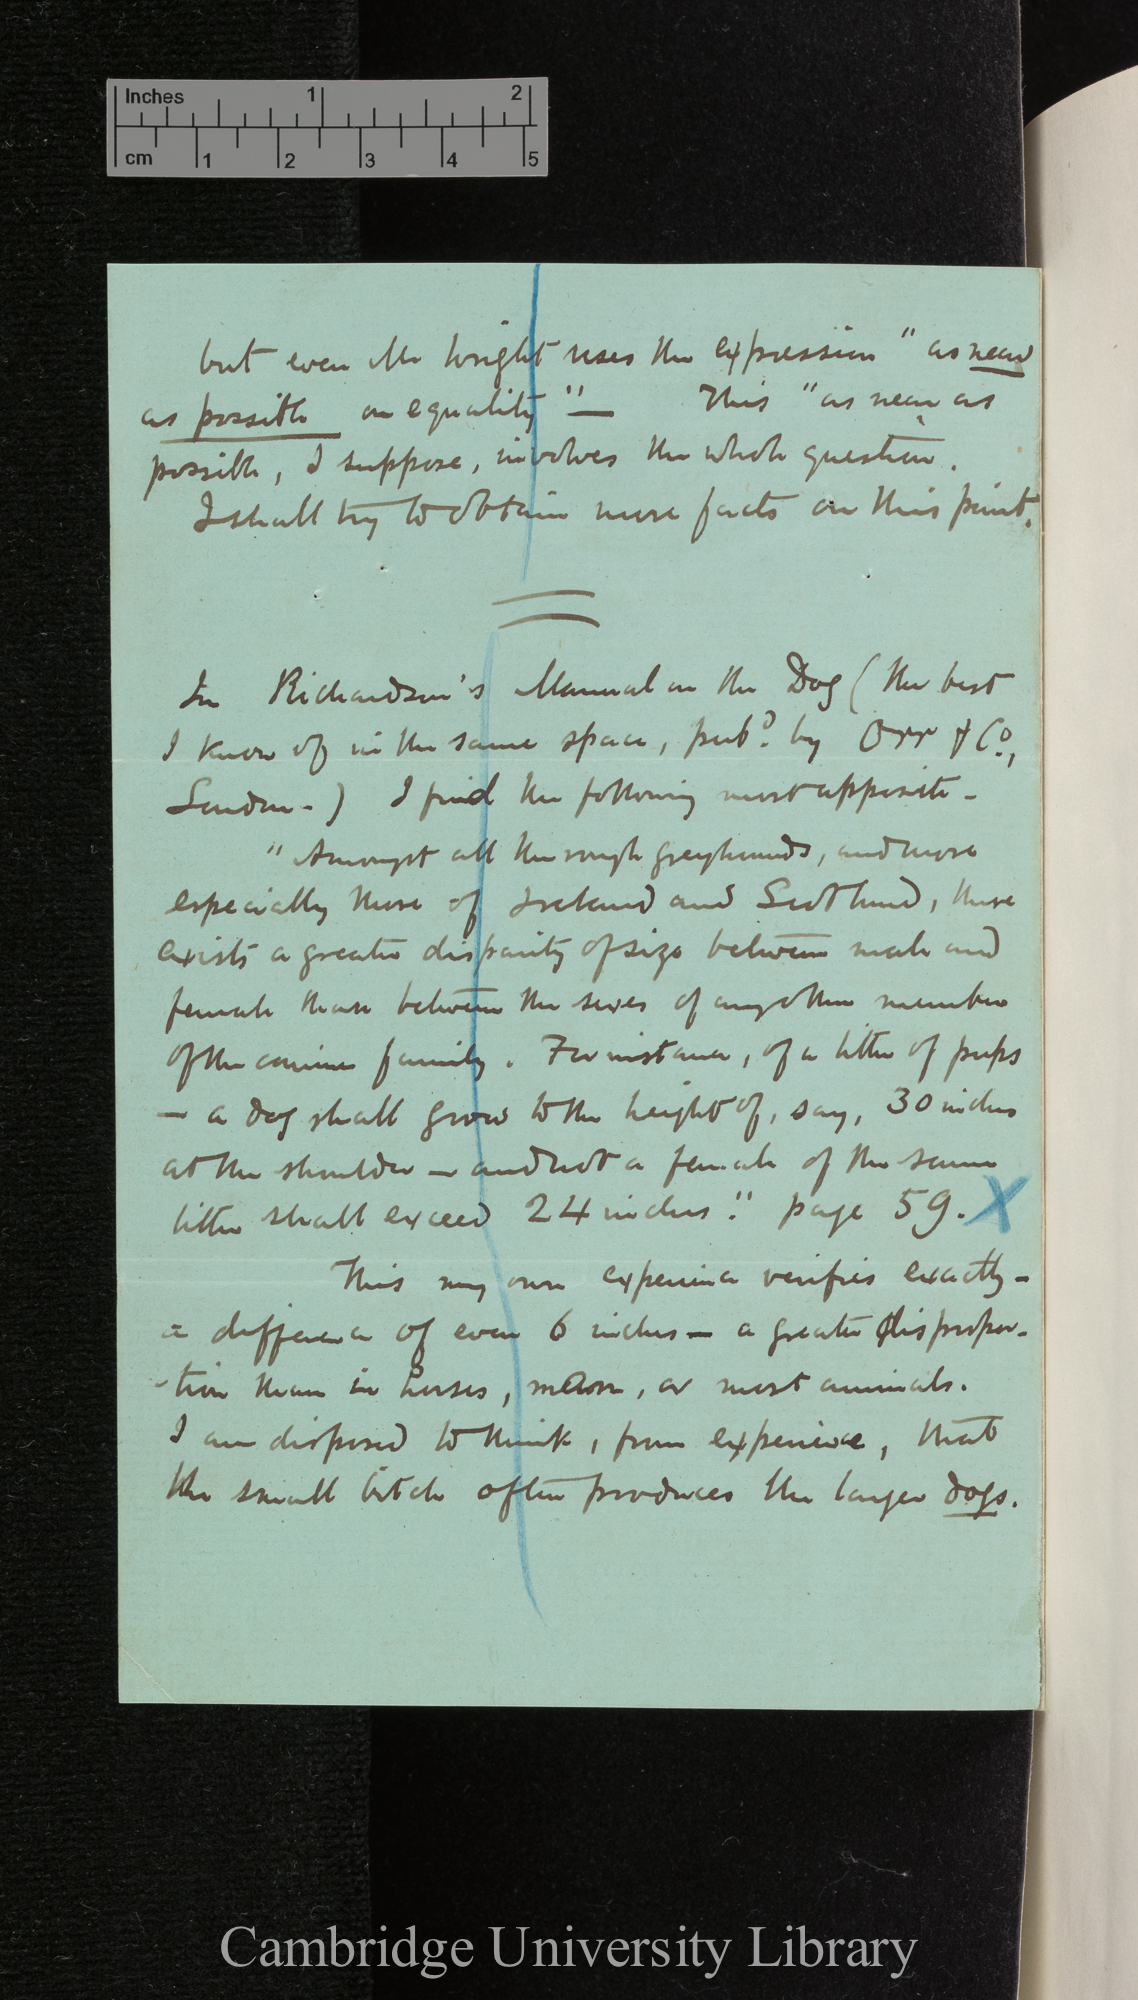 Inches 1 2
cm 1 2 3 4 5
but even Mr Wright uses the expression "as near
as possible an equality" — This "as near as
possible, I suppose, involves the whole question.
I shall try to obtain more facts on this point.
In Richardson's Manual on the Dog (the best
I know of in the same space, pubd. by Orr & Co.,
London-) I find the following most apposite -
"Amongst all the rough greyhounds, and more
especially those of Ireland and Scotland, there
exists a greater disparity of size between male and
female than between the sexes of any other member
of the canine family. For instance, of a litter of pups
— a dog shall grow to the height of, say, 30 inches
at the shoulder — and not a female of the same
litter shall exceed 24 inches." page 59. X
This my own experience verifies exactly -
a difference of even 6 inches — a greater dispropor-
-tion than in horses, man, or most animals.
I am disposed to think, from experience, that
the small bitch often produces the larger dogs.
Cambridge University Library